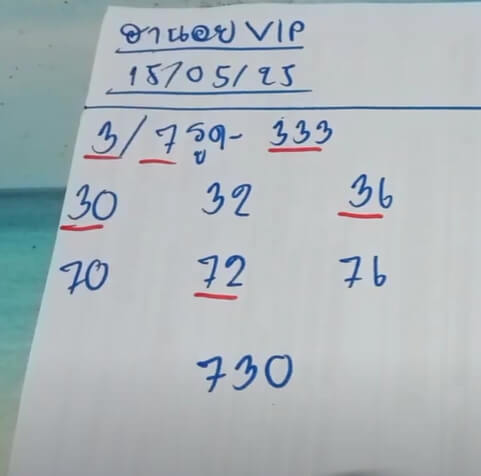 ฮานอย VIP
15/05/25
3/7 รูด- 333
30 32 36
70 72 76
730